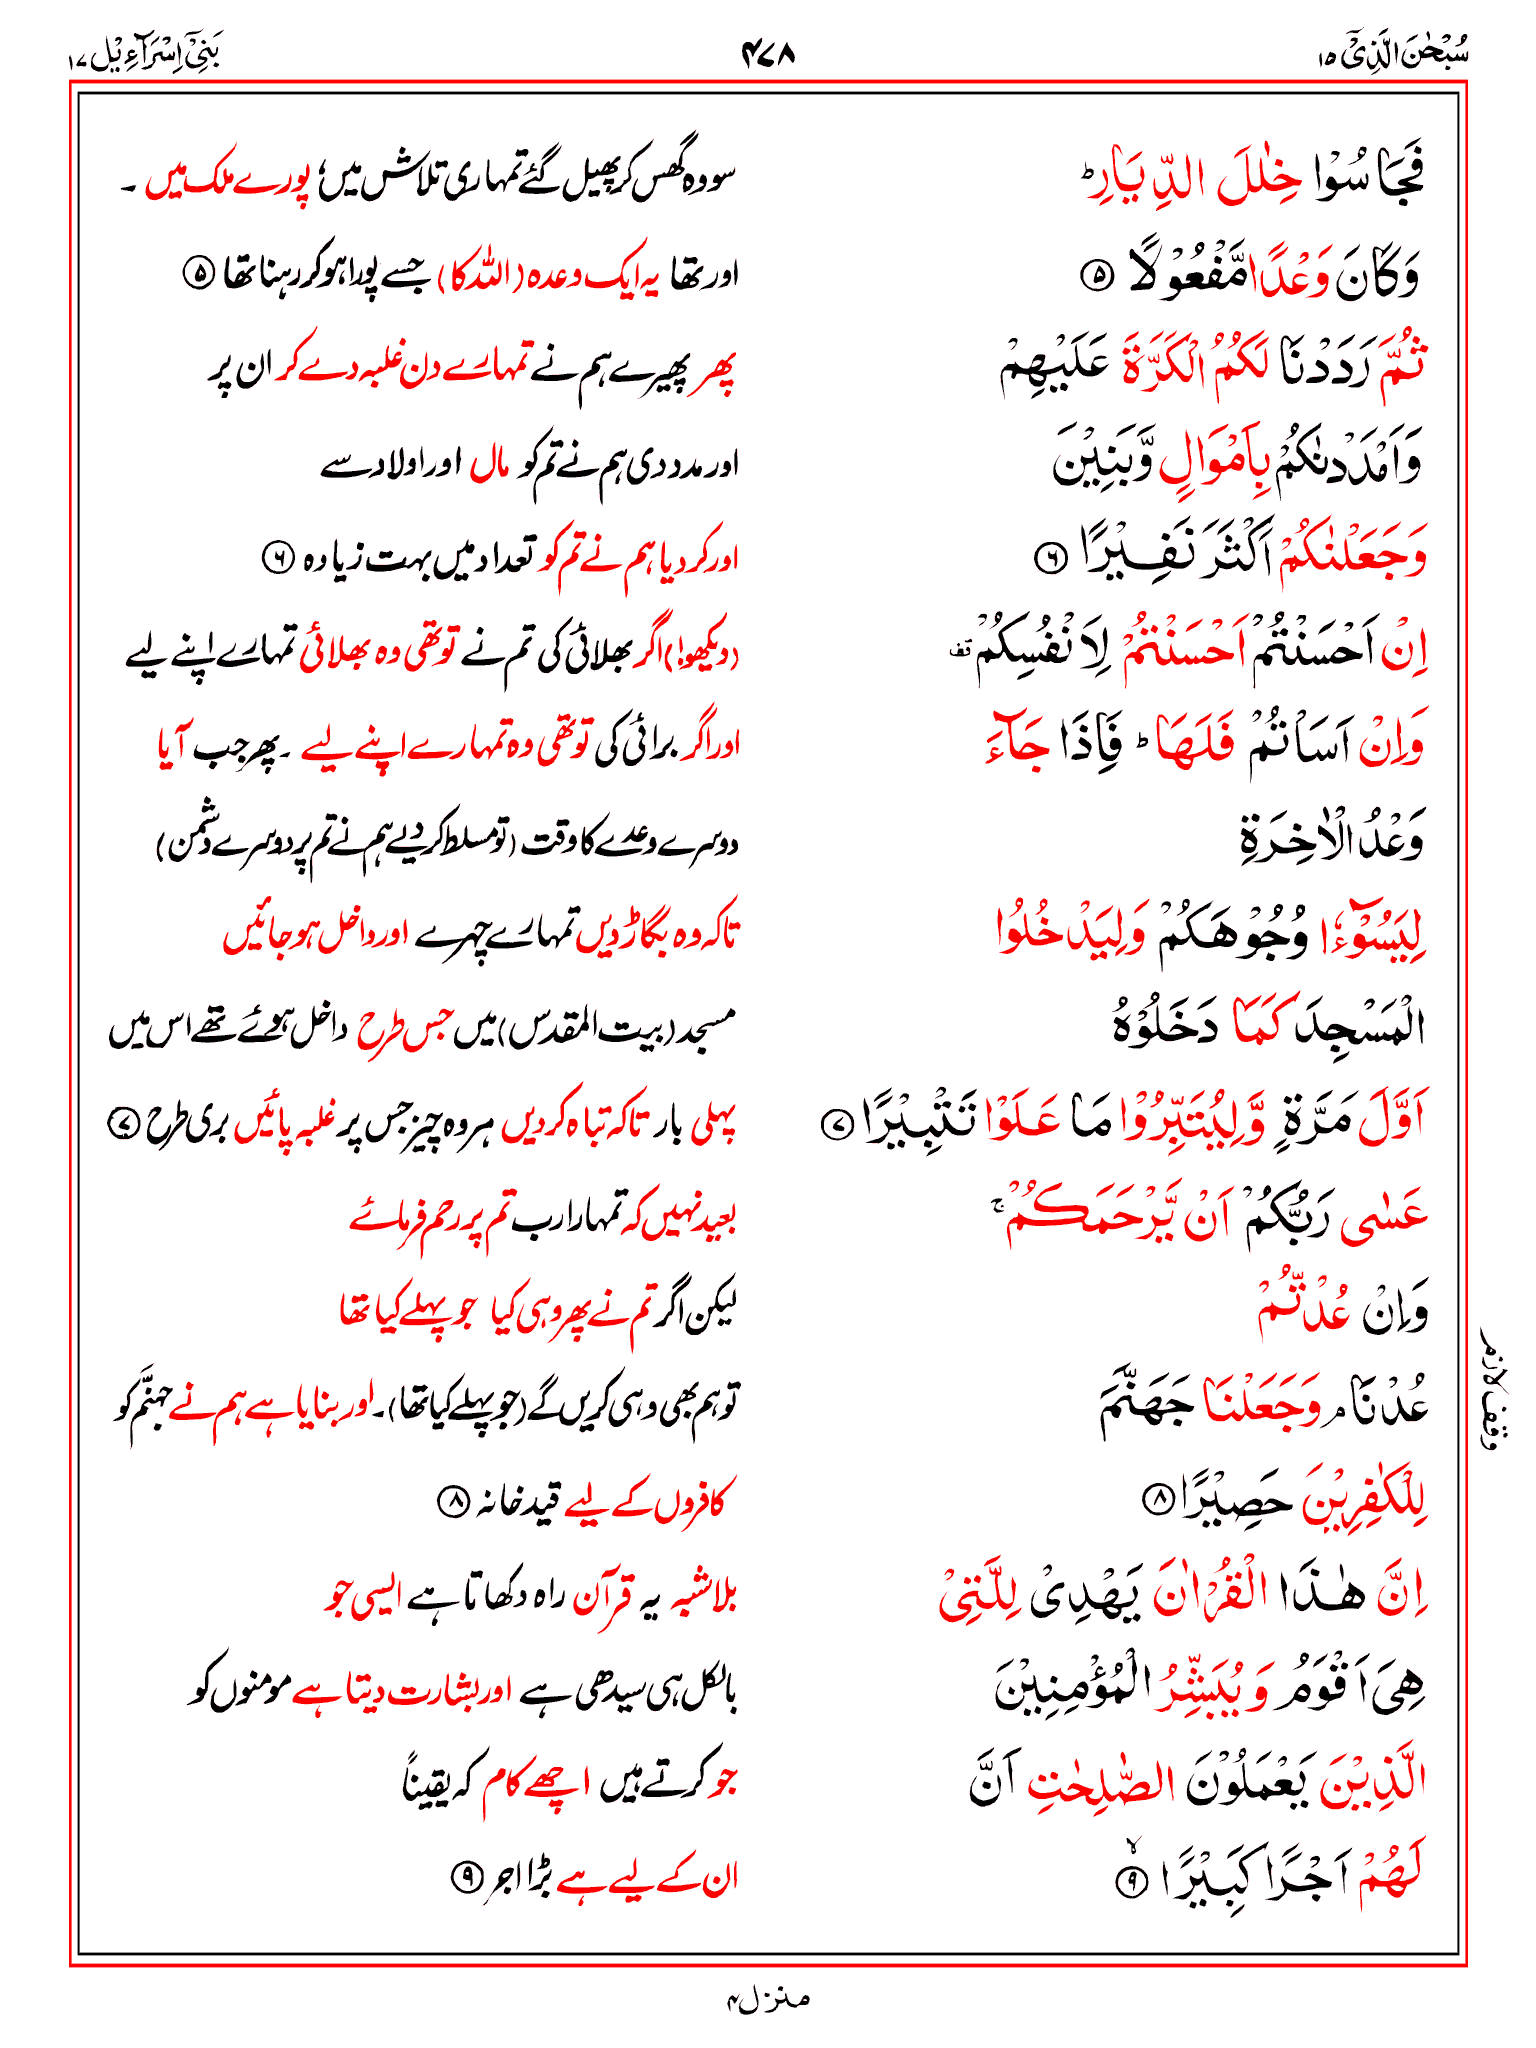 سُبْحٰنَ الَّذِیْۤ ۱۵
۴۷۸
بَنِیْۤ اِسْرَآءِیْل ۱۷
فَجَاسُوْا خِلٰلَ الدِّیَارِ ؕ
سو وہ گھس کر پھیل گئے تمہاری تلاش میں؛ پورے ملک میں ۔
وَكَانَ وَعْدًا مَّفْعُوْلًا ۵
اور تھا یہ ایک وعدہ (اللہ کا) جسے پورا ہو کر رہنا تھا ۵
ثُمَّ رَدَدْنَا لَكُمُ الْكَرَّةَ عَلَیْهِمْ
پھر پھیرے ہم نے تمہارے دن غلبہ دے کر ان پر
وَاَمْدَدْنٰكُمْ بِاَمْوَالٍ وَّبَنِیْنَ
اور مدد دی ہم نے تم کو مال اور اولاد سے
وَجَعَلْنٰكُمْ اَكْثَرَ نَفِیْرًا ۶
اور کر دیا ہم نے تم کو تعداد میں بہت زیادہ ۶
اِنْ اَحْسَنْتُمْ اَحْسَنْتُمْ لِاَنْفُسِكُمْ ۫
(دیکھو!) اگر بھلائی کی تم نے تو تھی وہ بھلائی تمہارے اپنے لیے
وَاِنْ اَسَاْتُمْ فَلَهَا ؕ فَاِذَا جَآءَ
اور اگر برائی کی تو تھی وہ تمہارے اپنے لیے ۔ پھر جب آیا
وَعْدُ الْاٰخِرَةِ
دوسرے وعدے کا وقت (تو مسلط کر دیے ہم نے تم پر دوسرے دشمن)
لِیَسُوْٓءٗا وُجُوْهَكُمْ وَلِیَدْخُلُوا
تاکہ وہ بگاڑ دیں تمہارے چہرے اور داخل ہو جائیں
الْمَسْجِدَ كَمَا دَخَلُوْهُ
مسجد (بیت المقدس) میں جس طرح داخل ہوئے تھے اس میں
اَوَّلَ مَرَّةٍ وَّلِیُتَبِّرُوْا مَا عَلَوْا تَتْبِیْرًا ۷
پہلی بار تاکہ تباہ کر دیں ہر وہ چیز جس پر غلبہ پائیں بری طرح ۷
عَسٰی رَبُّكُمْ اَنْ یَّرْحَمَكُمْ ۚ
بعید نہیں کہ تمہارا رب تم پر رحم فرمائے
وَاِنْ عُدْتُّمْ
لیکن اگر تم نے پھر وہی کیا جو پہلے کیا تھا
عُدْنَا ۘ وَجَعَلْنَا جَهَنَّمَ
تو ہم بھی وہی کریں گے (جو پہلے کیا تھا)۔ اور بنایا ہے ہم نے جہنّم کو
وقف لازم
لِلْكٰفِرِیْنَ حَصِیْرًا ۸
کافروں کے لیے قید خانہ ۸
اِنَّ هٰذَا الْقُرْاٰنَ یَهْدِیْ لِلَّتِیْ
بلا شبہ یہ قرآن راہ دکھاتا ہے ایسی جو
هِیَ اَقْوَمُ وَیُبَشِّرُ الْمُؤْمِنِیْنَ
بالکل ہی سیدھی ہے اور بشارت دیتا ہے مومنوں کو
الَّذِیْنَ یَعْمَلُوْنَ الصّٰلِحٰتِ اَنَّ
جو کرتے ہیں اچھے کام کہ یقیناً
لَهُمْ اَجْرًا كَبِیْرًا ۹ ۙ
ان کے لیے ہے بڑا اجر ۹
منزل ۴